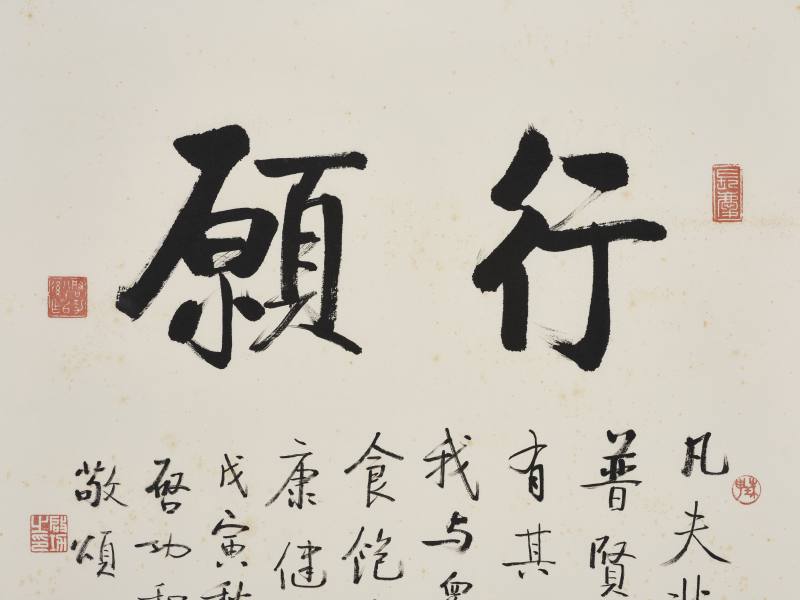 行願
凡夫
普賢
有其
我与
食飽
康健
戊寅秋
啓功
敬頌